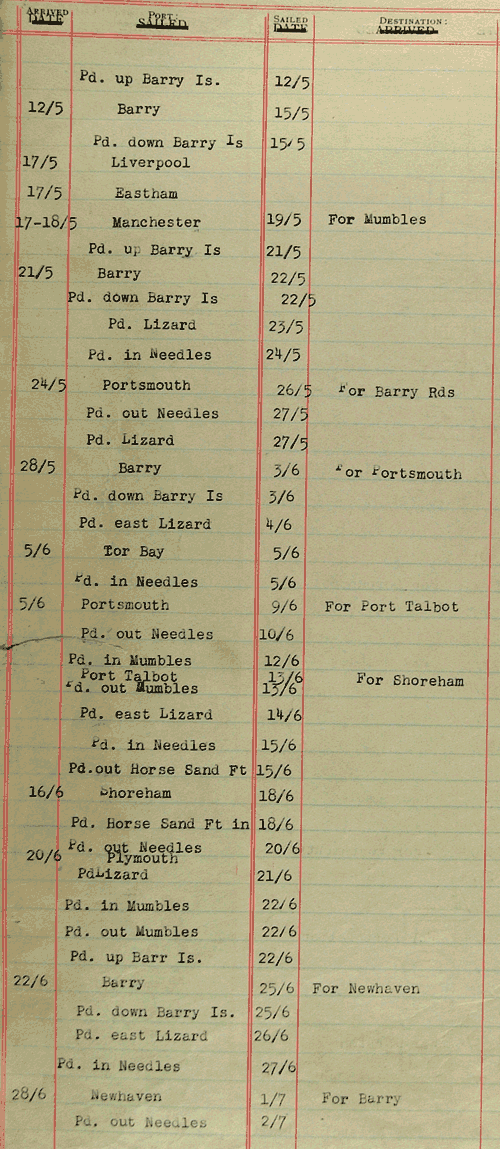 ARRIVED DATE PORT: SAILED SAILED DATE DESTINATION: ARRIVED
Pd. up Barry Is. 12/5
12/5 Barry 15/5
Pd. down Barry Is 15/5
17/5 Liverpool
17/5 Eastham
17-18/5 Manchester 19/5 For Mumbles
Pd. up Barry Is 21/5
21/5 Barry 22/5
Pd. down Barry Is 22/5
Pd. Lizard 23/5
Pd. in Needles 24/5
24/5 Portsmouth 26/5 For Barry Rds
Pd. out Needles 27/5
Pd. Lizard 27/5
28/5 Barry 3/6 For Portsmouth
Pd. down Barry Is 3/6
Pd. east Lizard 4/6
5/6 Tor Bay 5/6
Pd. in Needles 5/6
5/6 Portsmouth 9/6 For Port Talbot
Pd. out Needles 10/6
Pd. in Mumbles 12/6
Port Talbot 13/6 For Shoreham
Pd. out Mumbles 13/6
Pd. east Lizard 14/6
Pd. in Needles 15/6
Pd.out Horse Sand Ft 15/6
16/6 Shoreham 18/6
Pd. Horse Sand Ft in 18/6
Pd. out Needles 20/6
20/6 Plymouth
PdLizard 21/6
Pd. in Mumbles 22/6
Pd. out Mumbles 22/6
Pd. up Barr Is. 22/6
22/6 Barry 25/6 For Newhaven
Pd. down Barry Is. 25/6
Pd. east Lizard 26/6
Pd. in Needles 27/6
28/6 Newhaven 1/7 For Barry
Pd. out Needles 2/7